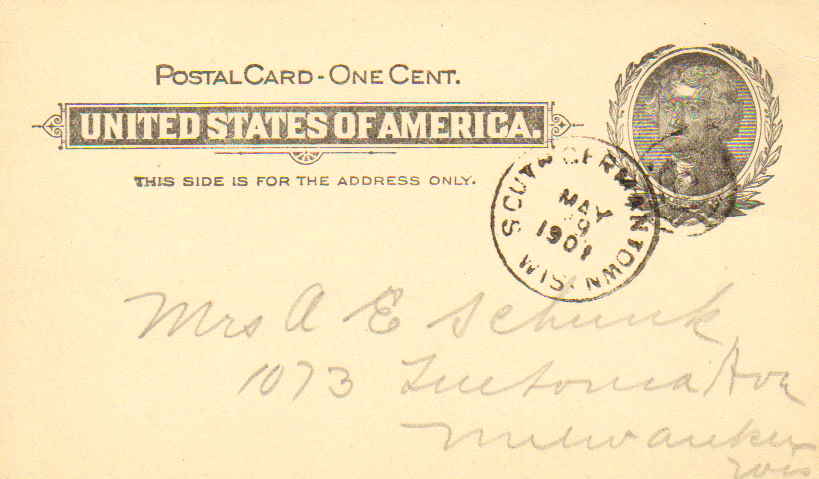 POSTAL CARD - ONE CENT.
UNITED STATES OF AMERICA.
THIS SIDE IS FOR THE ADDRESS ONLY.
SOUTH GERMANTOWN WIS.
MAY
1901
Mrs A E Schunk
1073 Teutonia Ave
Milwaukee
Wis